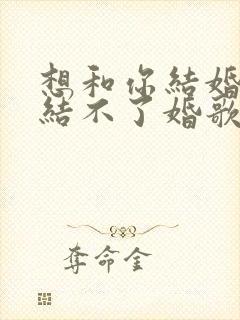 想和你結婚
結不了婚歌
奪命金